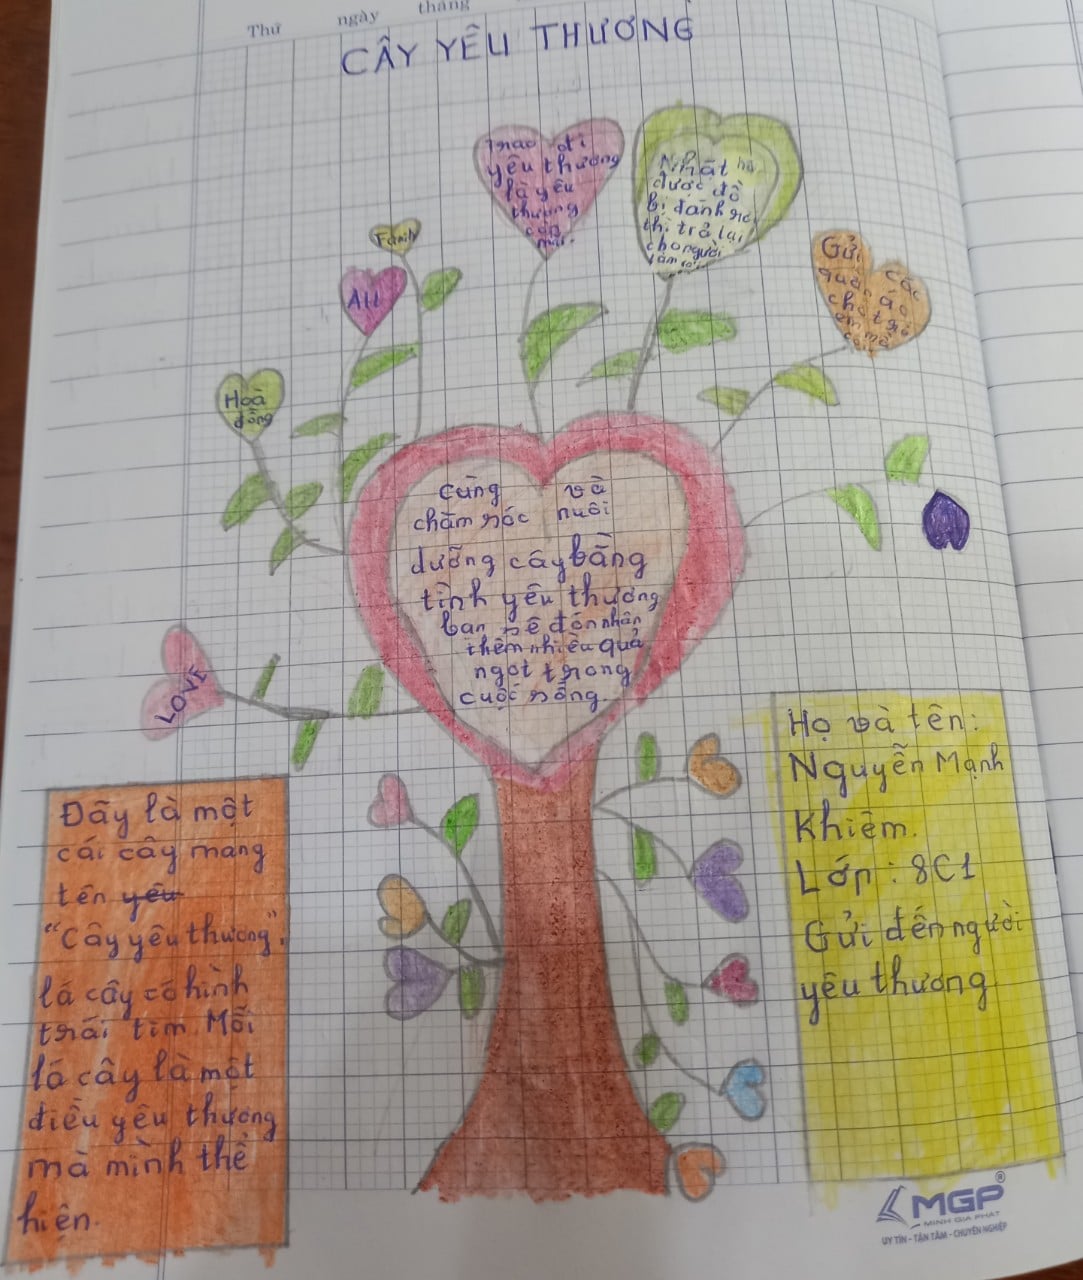 Thứ ngày tháng
CÂY YÊU THƯƠNG
Trao đi
yêu thương
là yêu
thương
còn
mãi.
Nhặt
được đồ
bị đánh rơi
thì trả lại
cho người
Gửi các
quần áo
cho trẻ
em
Fanh
ALL
Hoà
đồng
Cùng và
chăm sóc nuôi
dưỡng cây bằng
tình yêu thương
bạn sẽ đón nhận
thêm nhiều quả
ngọt trong
cuộc sống.
LOVE
Đây là một
cái cây mang
tên yêu
"Cây yêu thương".
lá cây có hình
trái tim Mỗi
lá cây là một
điều yêu thương
mà mình thể
hiện.
Họ và tên:
Nguyễn Mạnh
Khiêm.
Lớp: 8C1
Gửi đến người
yêu thương
MGP®
MINH GIA PHÁT
UY TÍN - TẬN TÂM - CHUYÊN NGHIỆP